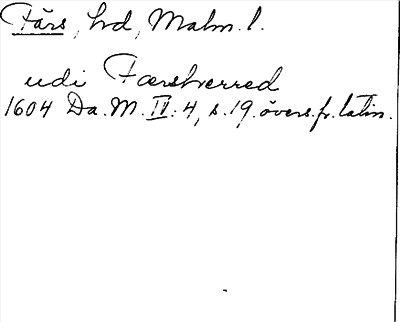 Färs, hrd, Malm. l.
udi Færsherred
1604 Da. M. IV: 4, s. 19. övers. fr. latin.